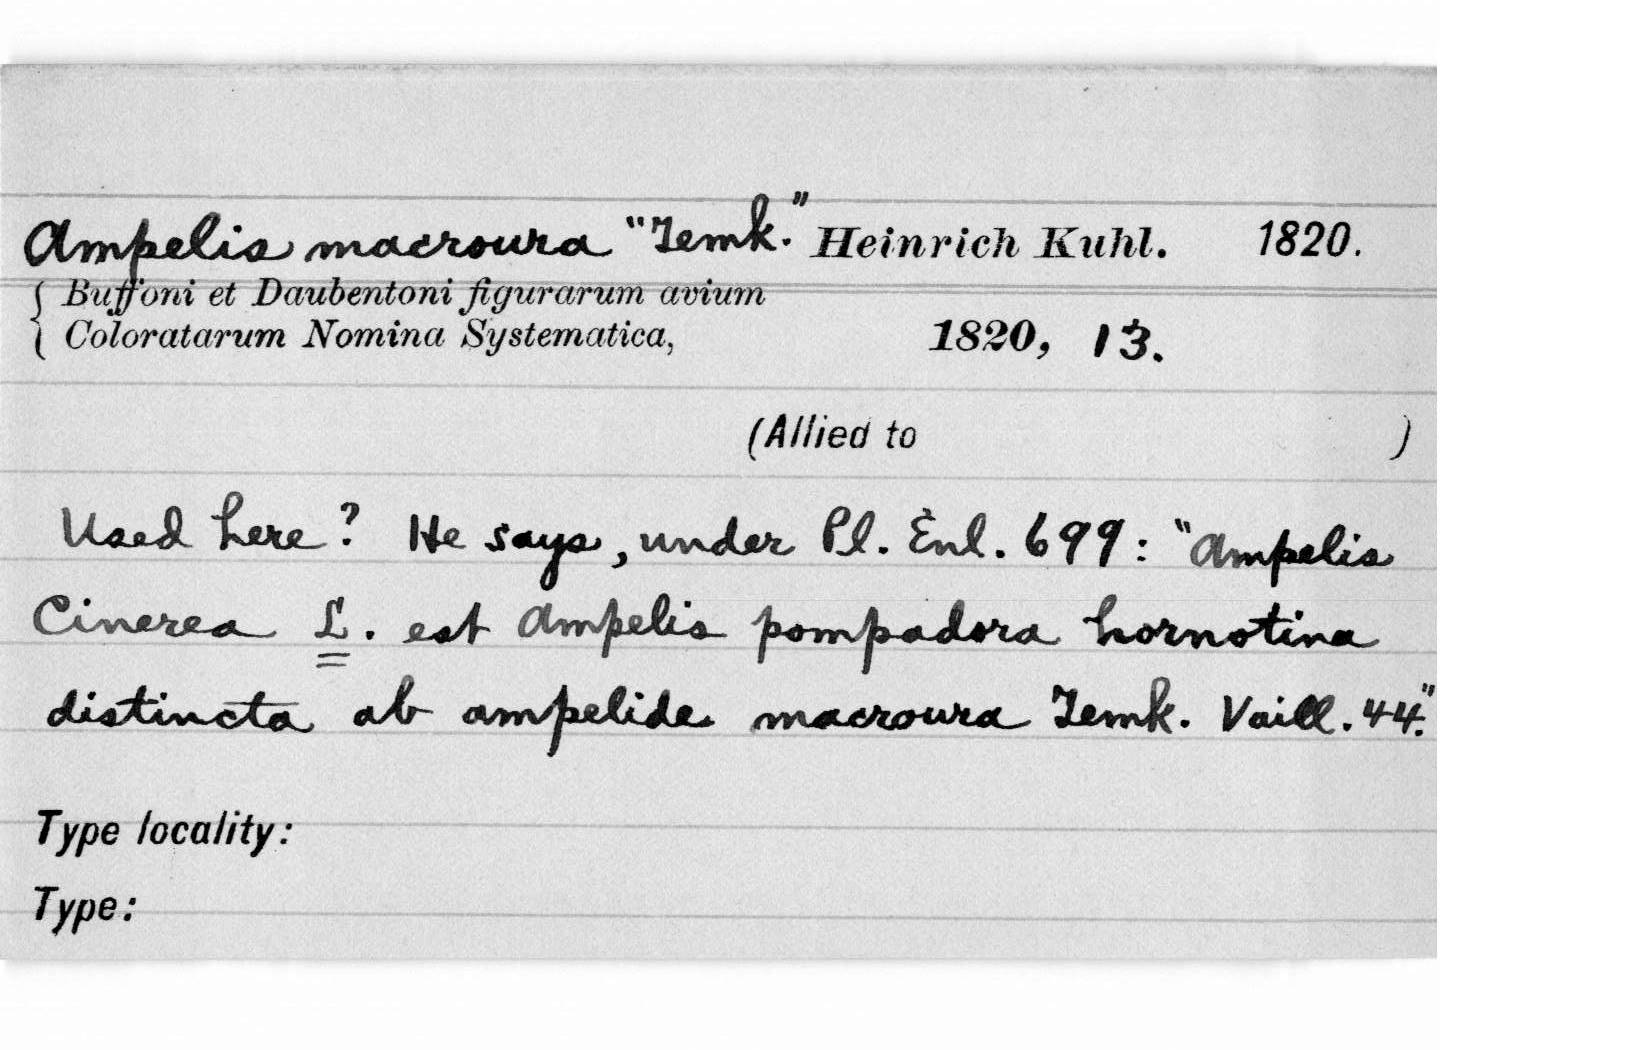 Ampelis macroura "Temk." Heinrich Kuhl. 1820.
Buffoni et Daubentoni figurarum avium
Coloratarum Nomina Systematica, 1820, 13.
(Allied to )
Used here? He says, under Pl. Enl. 699: "Ampelis
Cinerea L. est Ampelis pompadora hornotina
distincta ab ampelide macroura Temk. Vaill. 44."
Type locality:
Type: